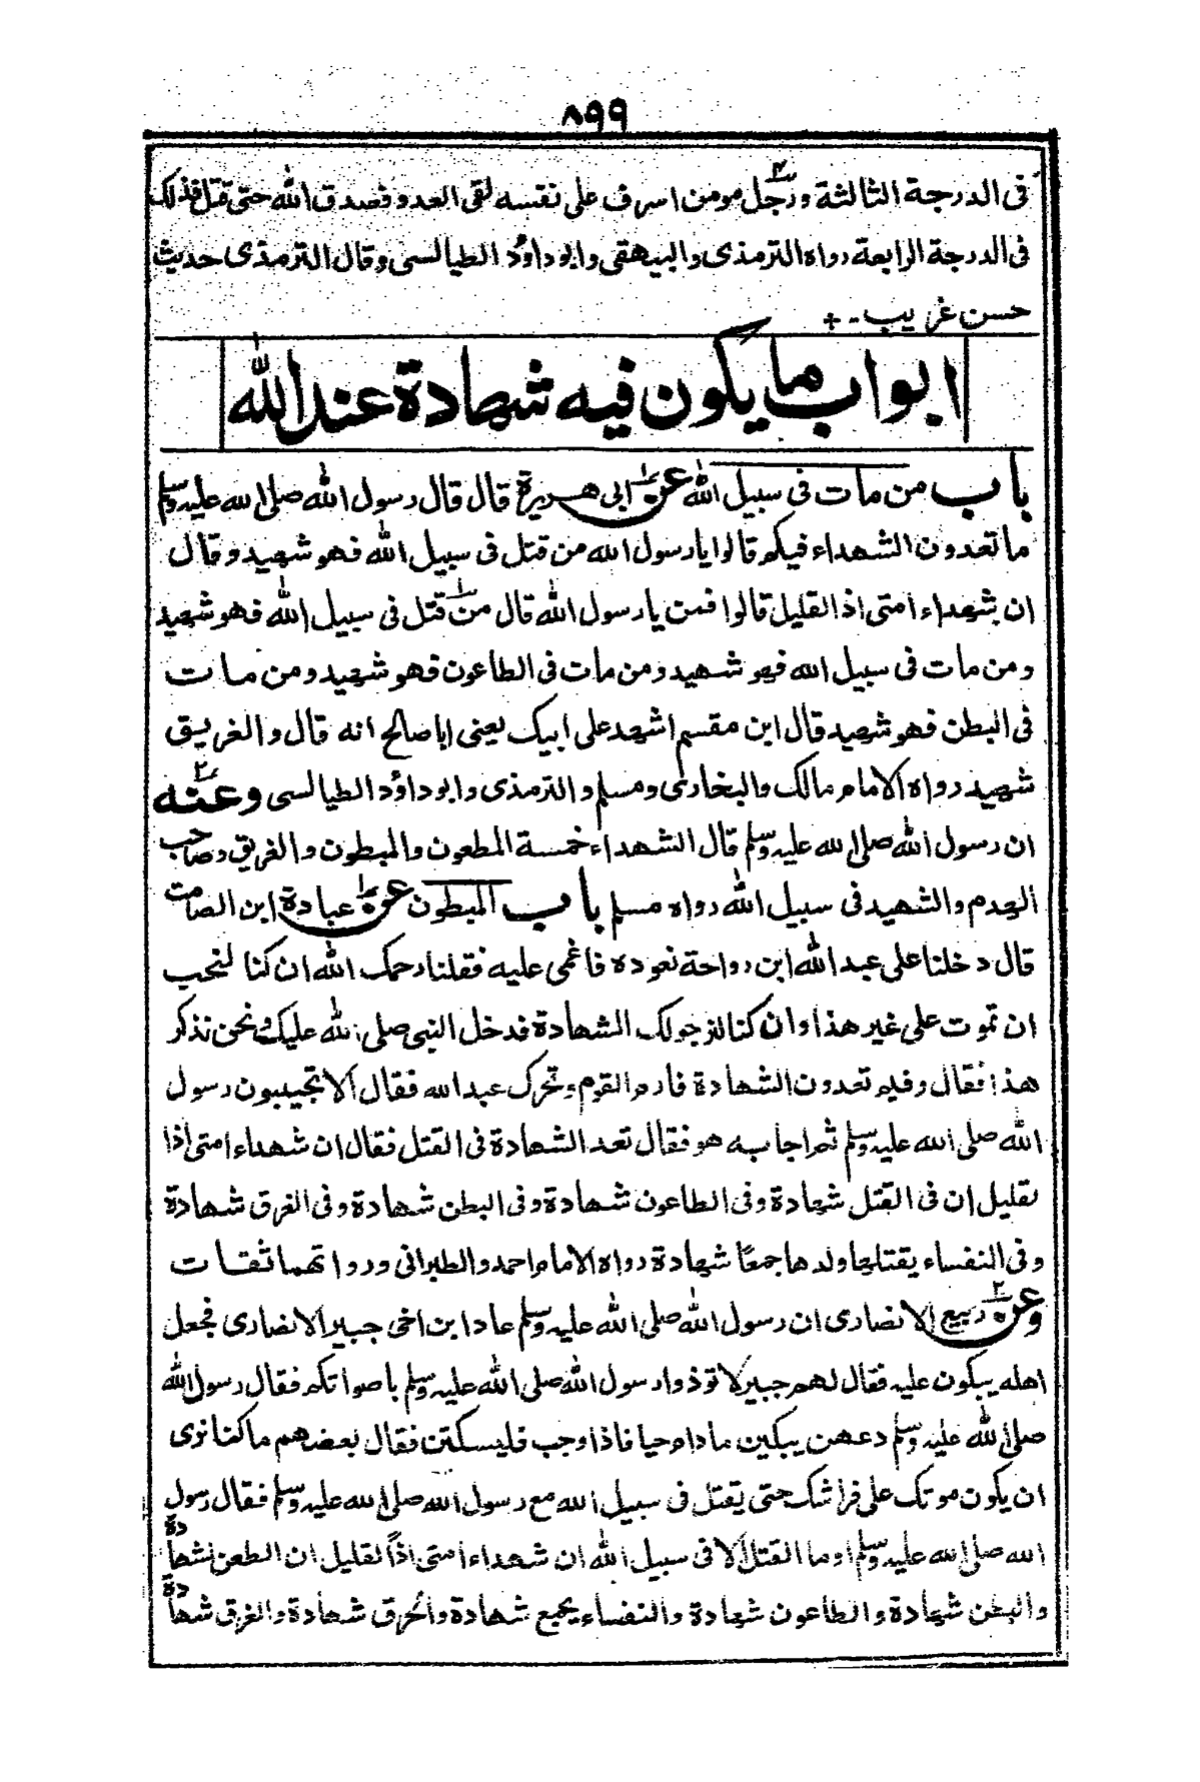 ٨٩٩
فى الدرجة الثالثة ورجل مومن اسرف على نفسه لقى العدو فصدق الله حتى قتل فذلك
فى الدرجة الرابعة رواه الترمذى والبيهقى وابوداؤد الطيالسى وقال الترمذى حديث
حسن غريب -+
ابواب ما يكون فيه شهادة عند الله
باب من مات فى سبيل الله عن ابى هريرة قال قال رسول الله صلى الله عليه وسلم
ما تعدون الشهداء فيكم قالوا يا رسول الله من قتل فى سبيل الله فهو شهيد وقال
ان شهداء امتى اذا لقليل قالوا فمن يا رسول الله قال من قتل فى سبيل الله فهو شهيد
ومن مات فى سبيل الله فهو شهيد ومن مات فى الطاعون فهو شهيد ومن مات
فى البطن فهو شهيد قال ابن مقسم اشهد على ابيك يعنى ابا صالح انه قال والغريق
شهيد رواه الامام مالك والبخارى ومسلم والترمذى وابوداؤد الطيالسى وعنه
ان رسول الله صلى الله عليه وسلم قال الشهداء خمسة المطعون والمبطون والغريق وصاحب
الهدم والشهيد فى سبيل الله رواه مسلم باب المبطون عن عبادة ابن الصامت
قال دخلنا على عبد الله ابن رواحة نعوده فاغمى عليه فقلنا رحمك الله ان كنا لنحب
ان تموت على غير هذا وان كنا لنرجو لك الشهادة فدخل النبى صلى الله عليك ونحن نذكر
هذا فقال وفيم تعدون الشهادة فارم القوم وتحرك عبد الله فقال الا تجيبون رسول
الله صلى الله عليه وسلم ثم اجابه هو فقال تعد الشهادة فى القتل فقال ان شهداء امتى اذا
لقليل ان فى القتل شهادة وفى الطاعون شهادة وفى البطن شهادة وفى الغرق شهادة
وفى النفساء يقتلها ولدها جمعًا شهادة رواه الامام احمد والطبرانى ورواتهما ثقات
وعن ربيع الانصارى ان رسول الله صلى الله عليه وسلم عاد ابن اخى جبير الانصارى فجعل
اهله يبكون عليه فقال لهم جبير لا توذوا رسول الله صلى الله عليه وسلم باصواتكم فقال رسول الله
صلى الله عليه وسلم دعهن يبكين مادام حيا فاذا وجب فليسكتن فقال بعضهم ما كنا نرى
ان يكون موتك على فراشك حتى يقتل فى سبيل الله مع رسول الله صلى الله عليه وسلم فقال رسول
الله صلى الله عليه وسلم او ما القتل الا فى سبيل الله ان شهداء امتى اذًا لقليل ان الطعن لشهادة
والبطن شهادة والطاعون شهادة والنفساء يجمع شهادة والحرق شهادة والغرق شهادة